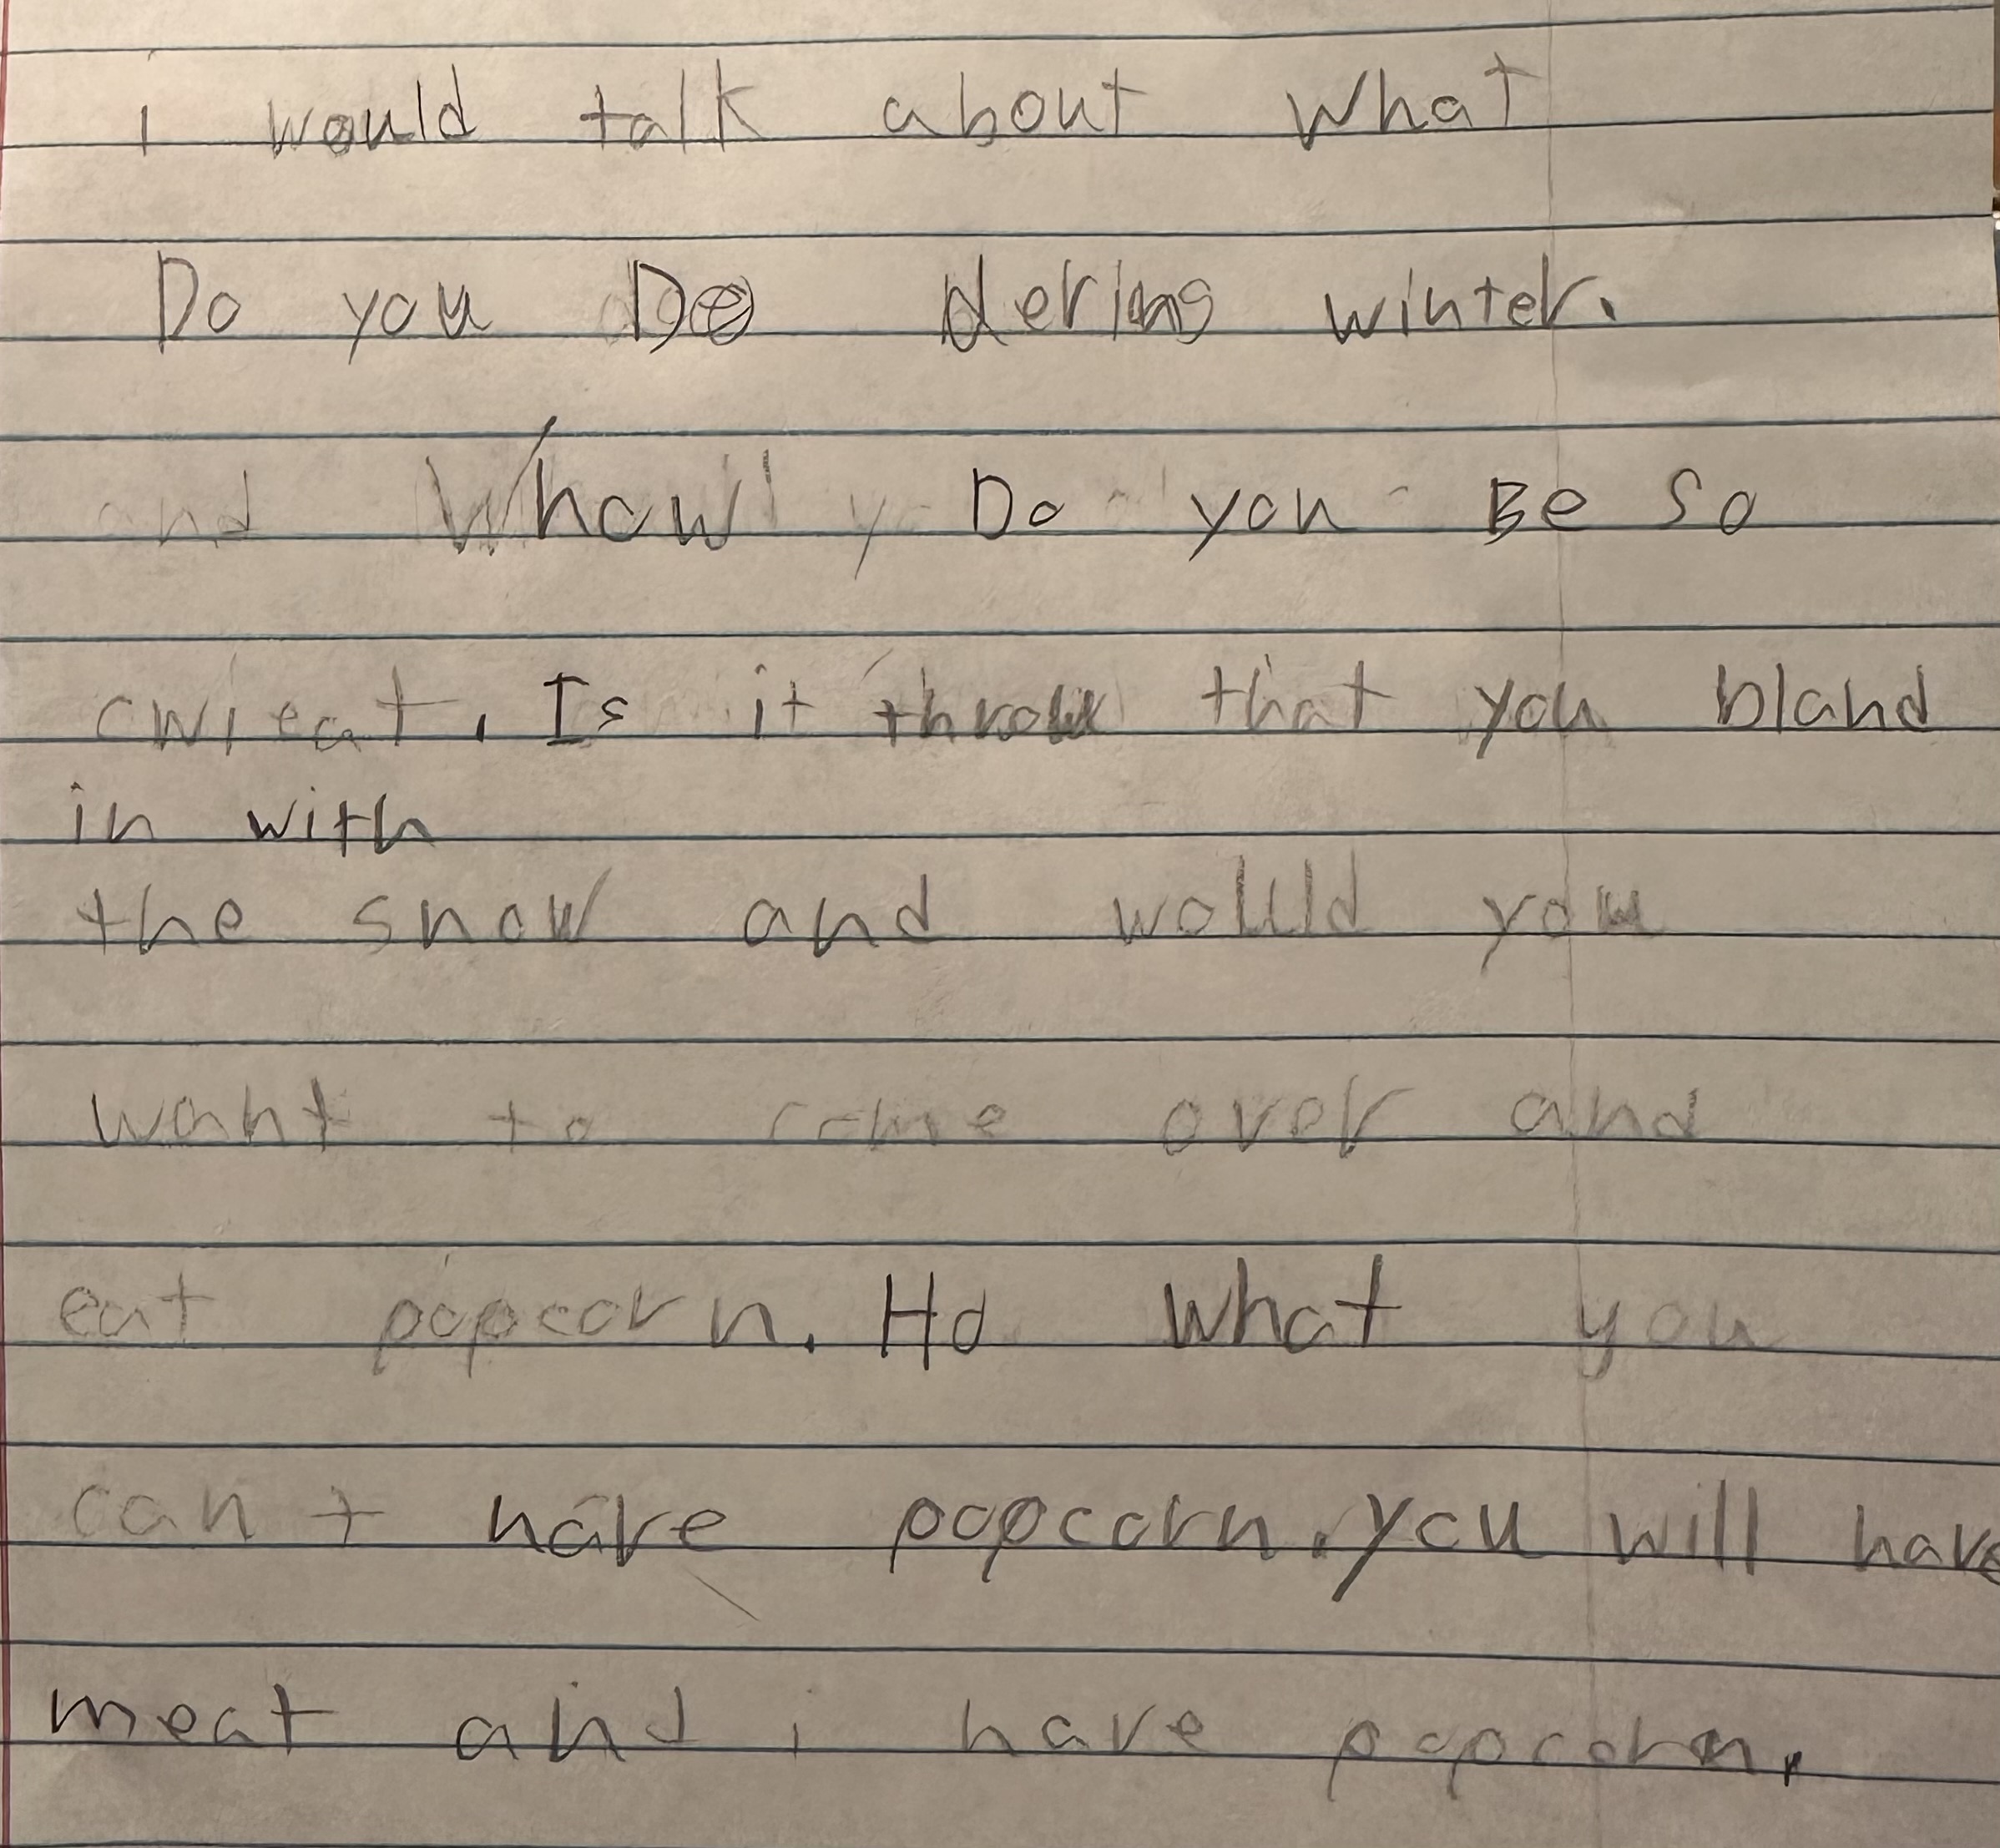 i would talk about what
Do you Do dering winter.
and Whow Do you Be so
cwieat. Is it throw that you bland
in with
the snow and would you
want to come over and
eat popcorn. Ho what you
can t have popcorn. you will have
meat and i have popcorn.